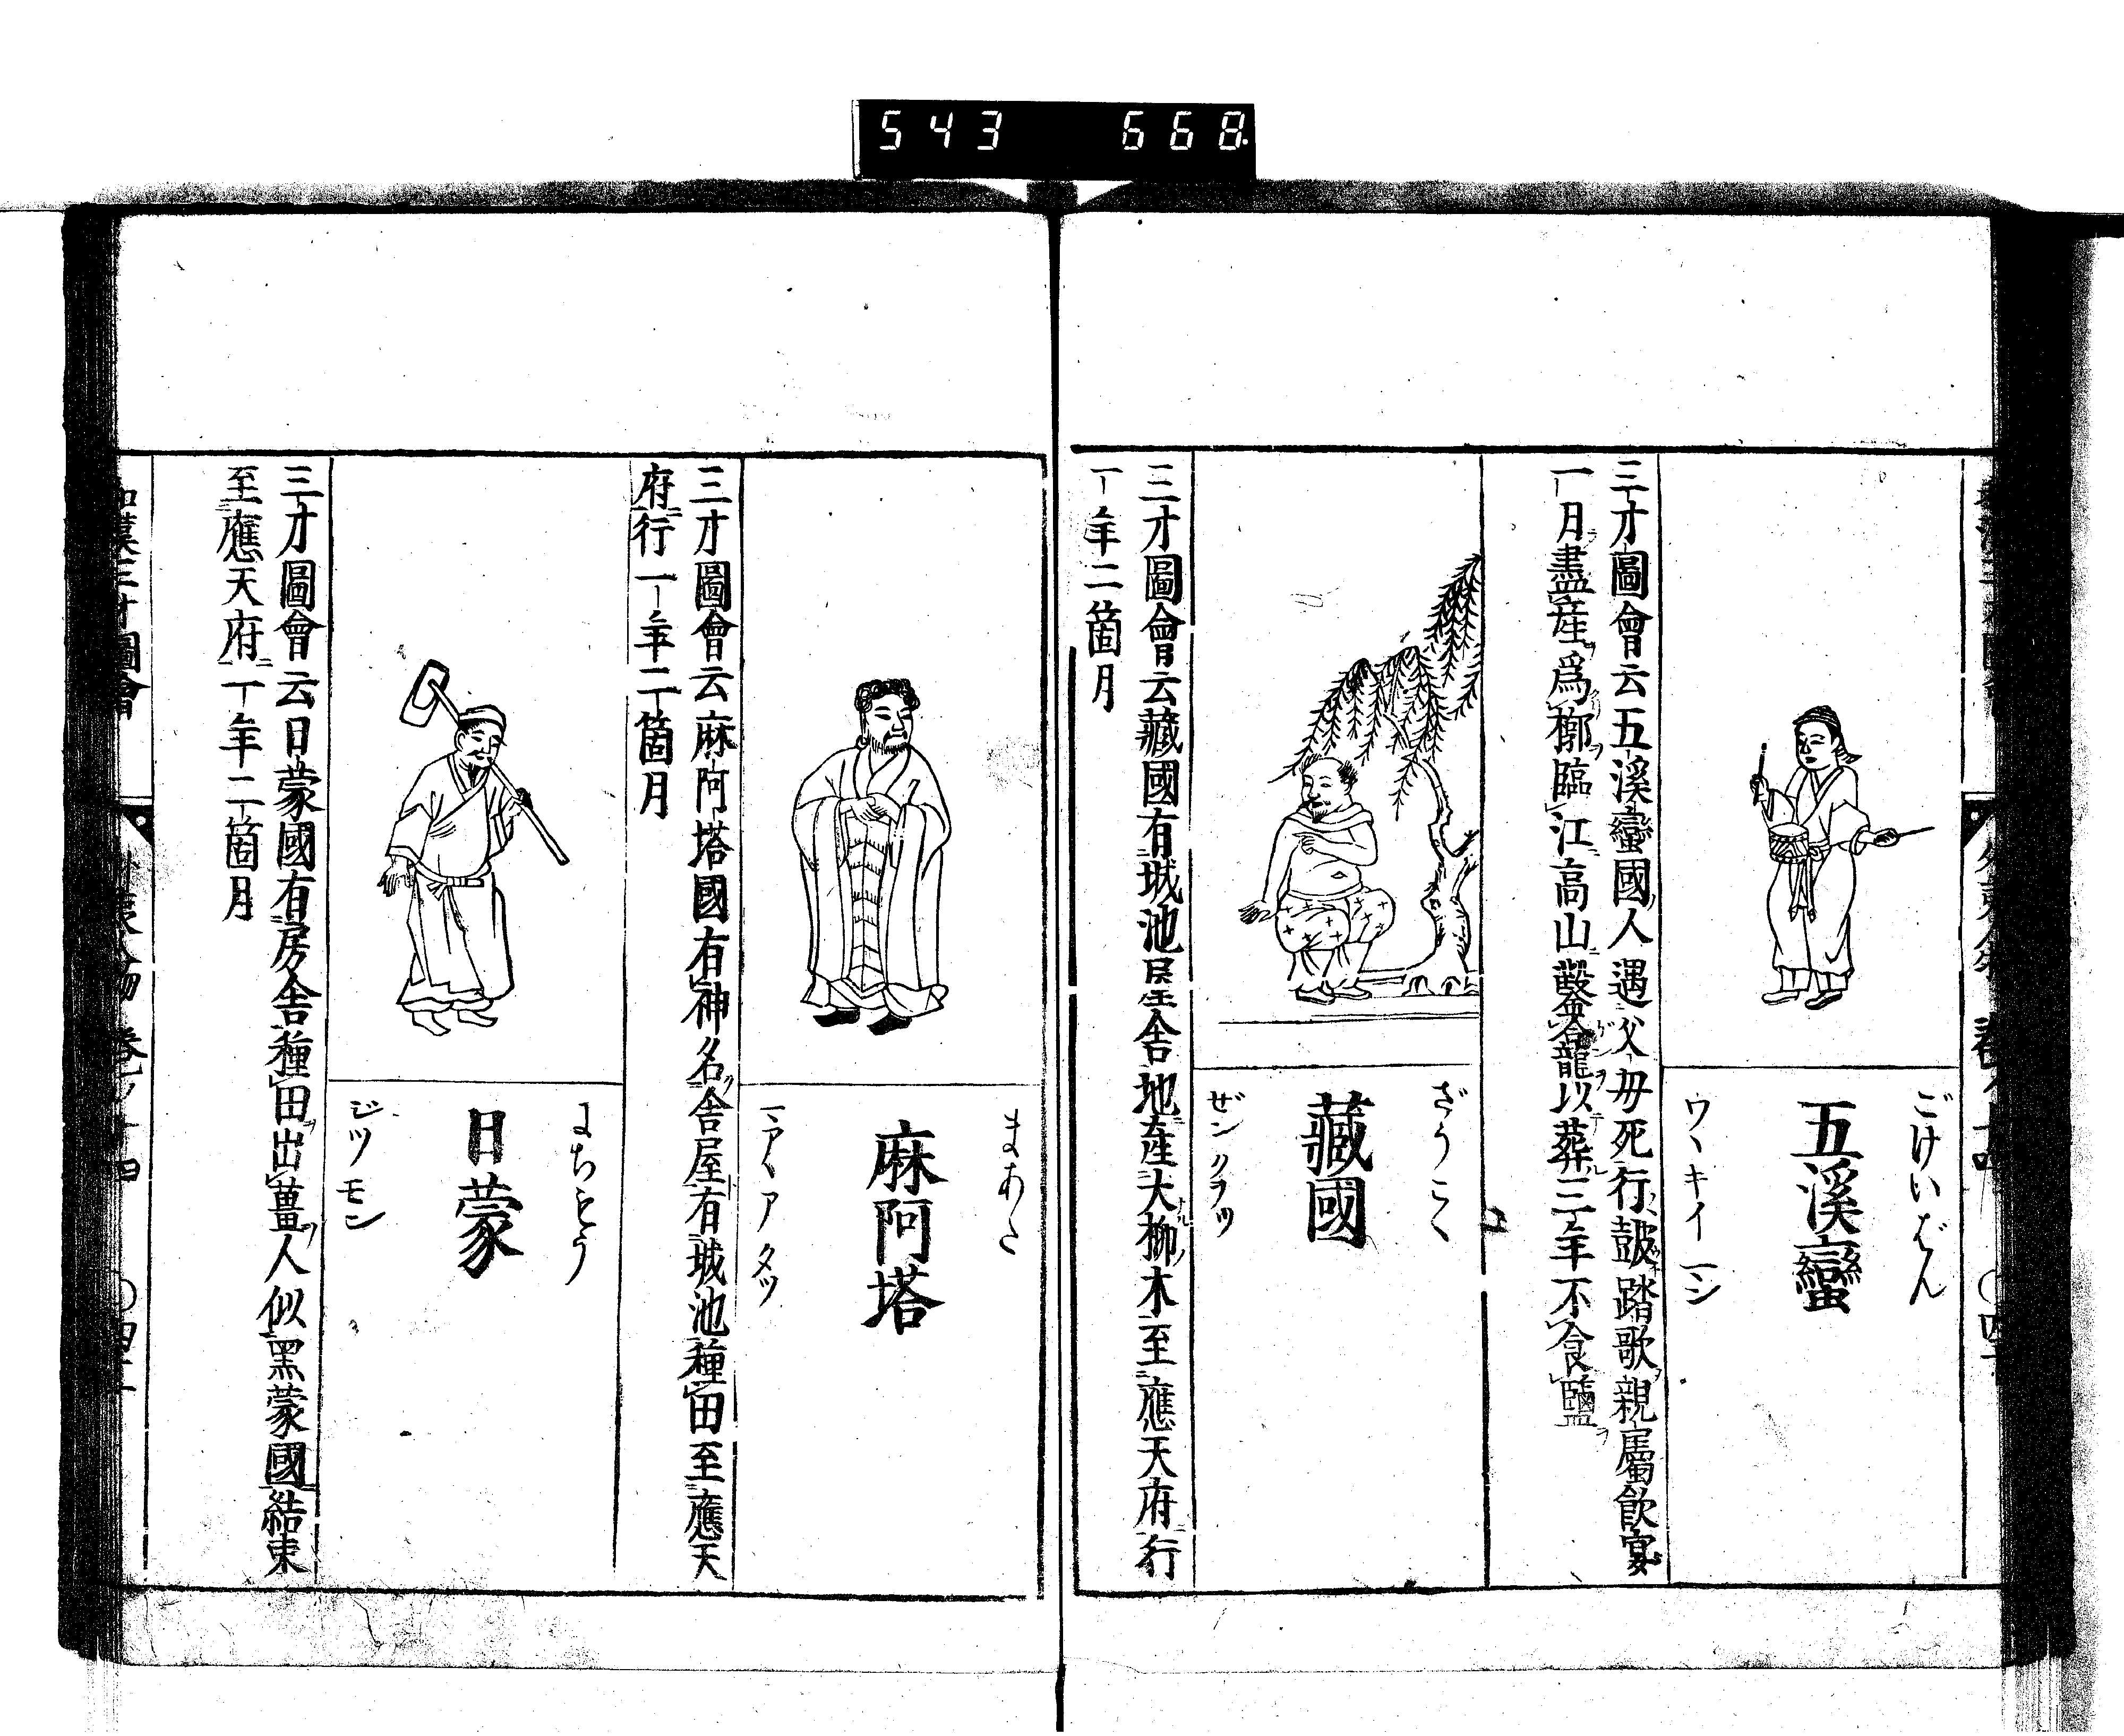 543 668.
ごけいばん
五溪蠻
ワヽキイ
三才圖會云五溪蠻國人遇父母死行皷踏歌親屬飲宴
一月盡産爲槨臨江高山鑿龕以葬三年不食鹽
ざうこく
藏國
ゼンクヲツ
三才圖會云藏國有城池屋舍地産大柳木至應天府行
一年二箇月
まあた
麻阿塔
アタツ
三才圖會云麻阿塔國有神名舍屋有城池種田至應天
府行一年二箇月
にちもう
日蒙
ジツモン
三才圖會云日蒙國有房舍種田出薑人似黑蒙國結束
至應天府一年二箇月
和漢三才圖會